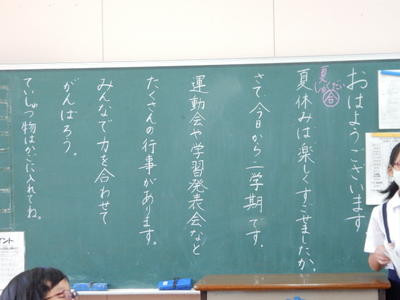 おはようございます
夏休みは楽しくすごせましたか。
さて、今日から二学期です。
運動会や学習発表会など
たくさんの行事があります。
みんなで力を合わせて
がんばろう。
ていしゅつ物はかごに入れてね。
イント